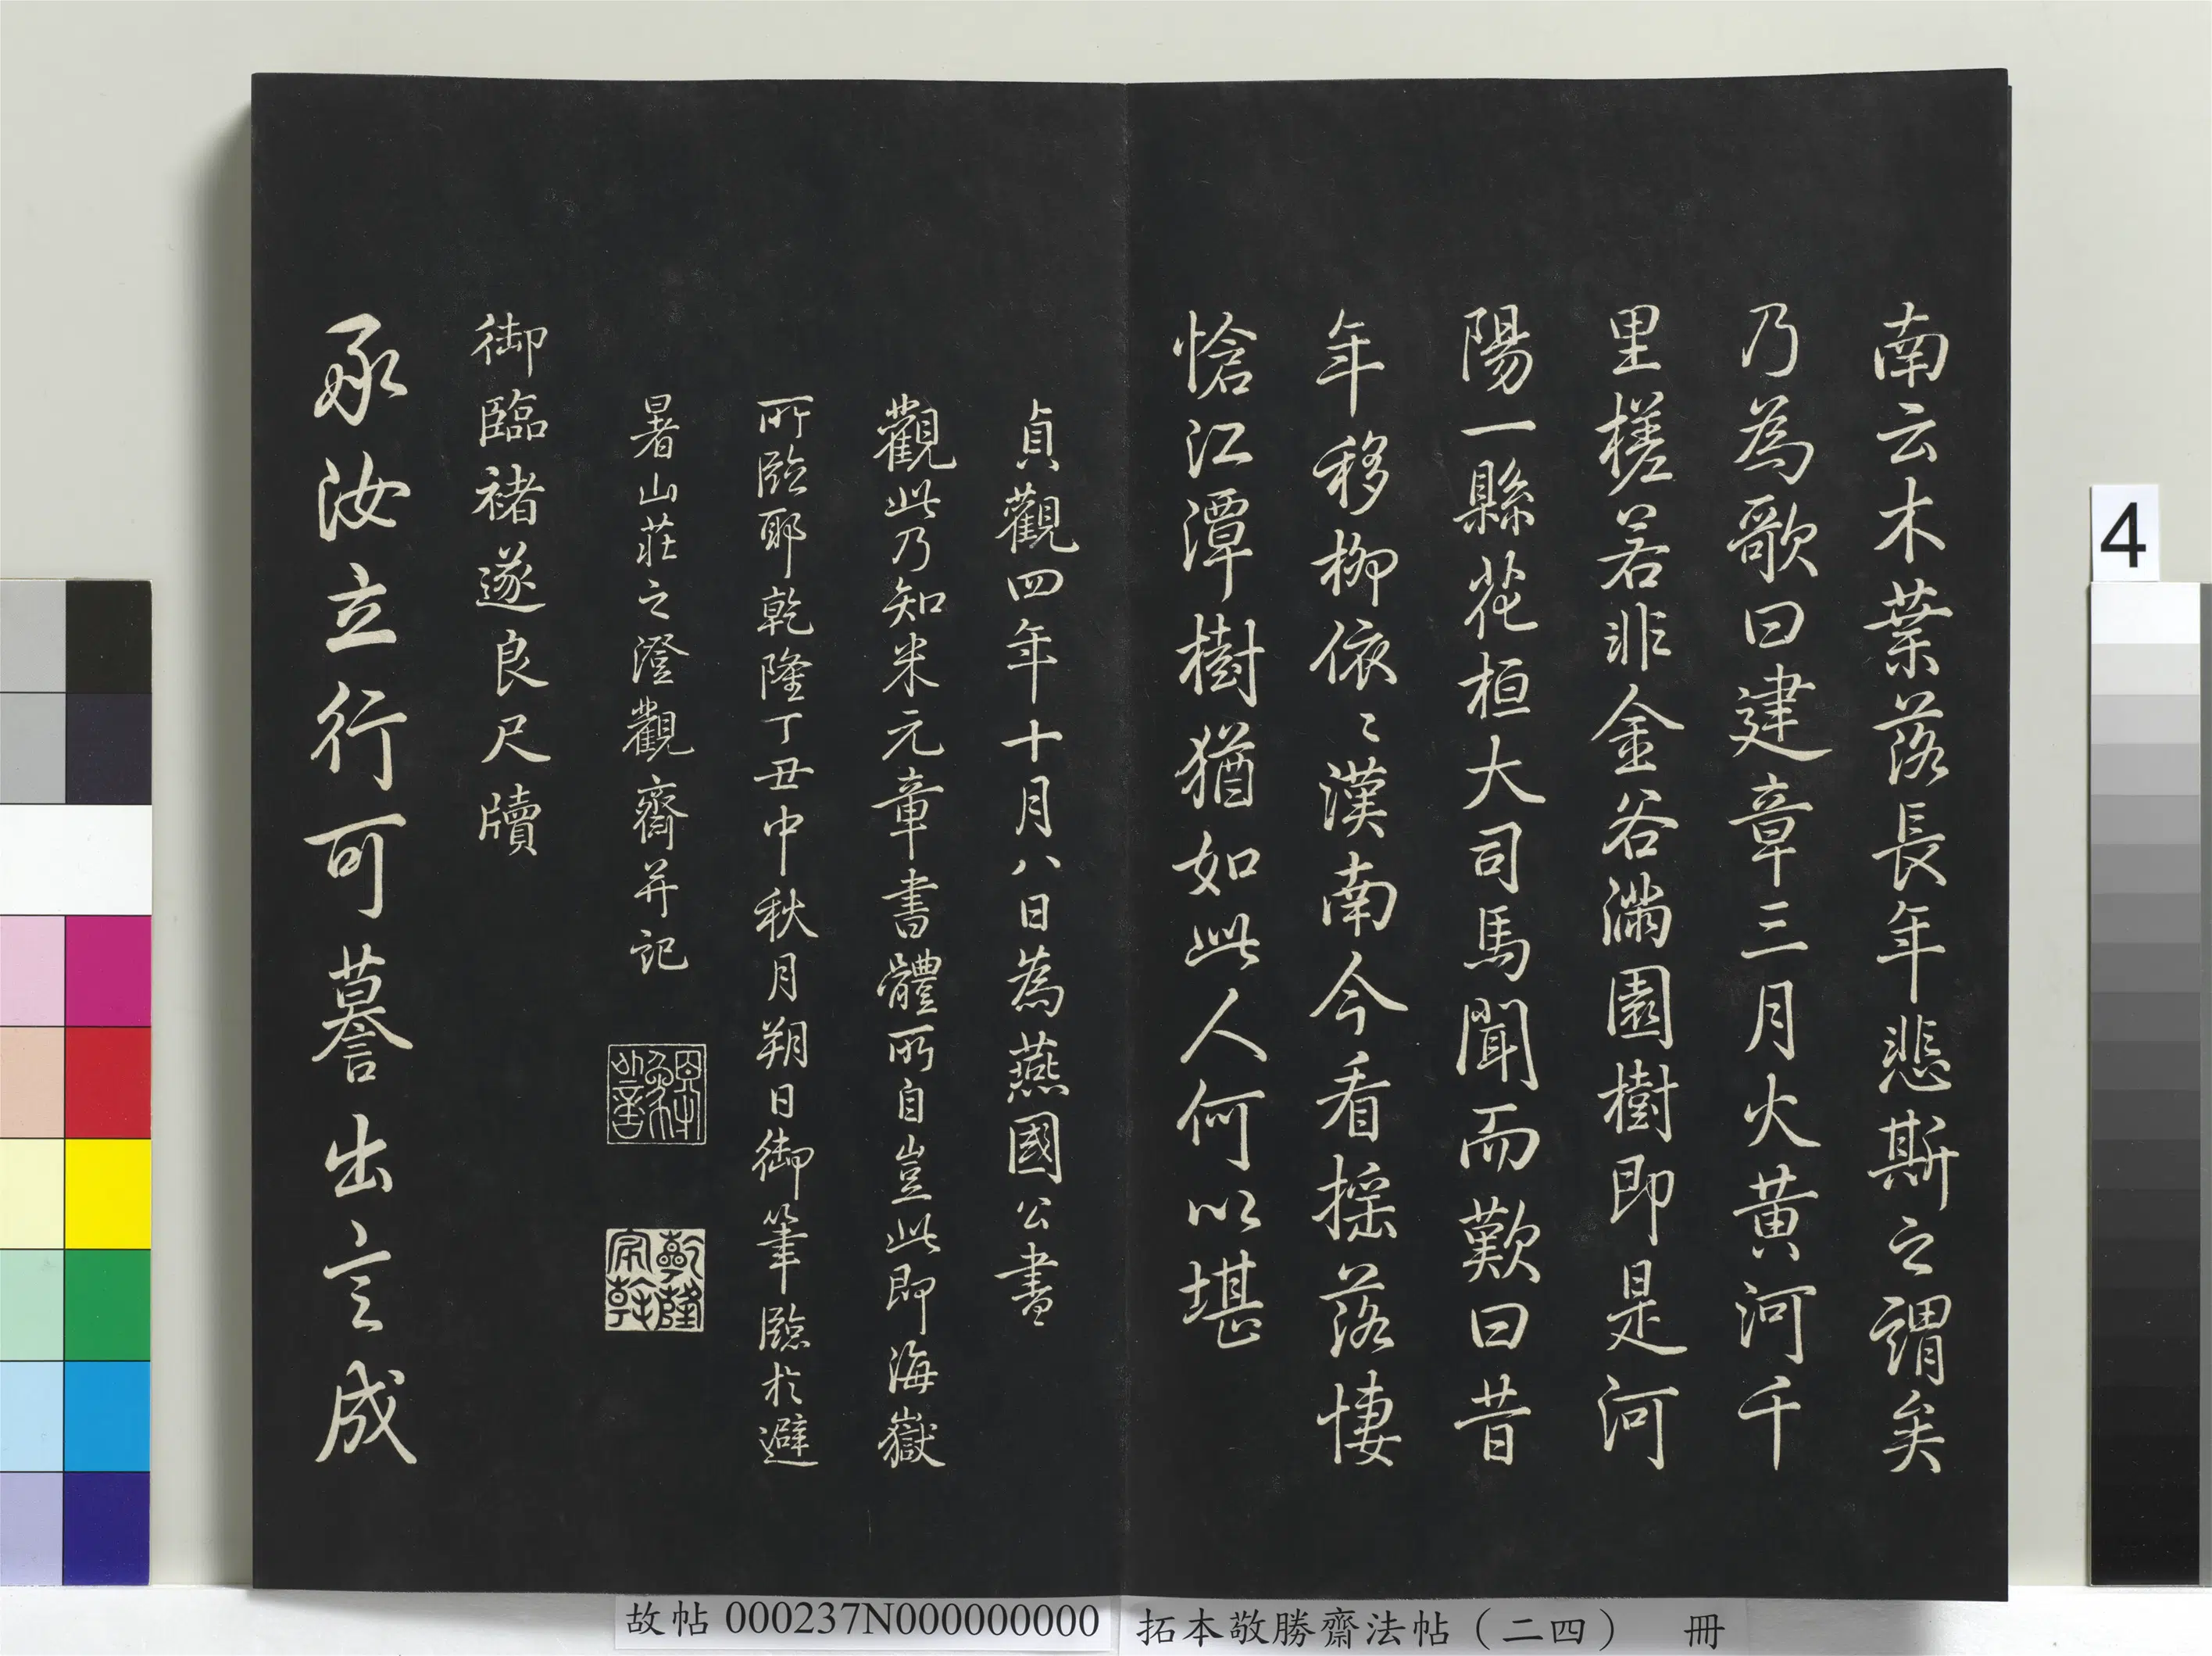 南云木葉落長年悲斯之謂矣
乃為歌曰建章三月火黃河千
里槎若非金谷滿園樹即是河
陽一縣花桓大司馬聞而歎曰昔
年移柳依〻漢南今看搖落悽
愴江潭樹猶如此人何以堪
貞觀四年十月八日為燕國公書
觀此乃知米元章書體所自豈此即海嶽
所臨耶乾隆丁丑中秋月朔日御筆臨於避
暑山莊之澄觀齋并記
乾隆
宸翰
御臨褚遂良尺牘
承汝立行可慕出言成
故帖 000237N000000000
拓本敬勝齋法帖（二四） 冊
4